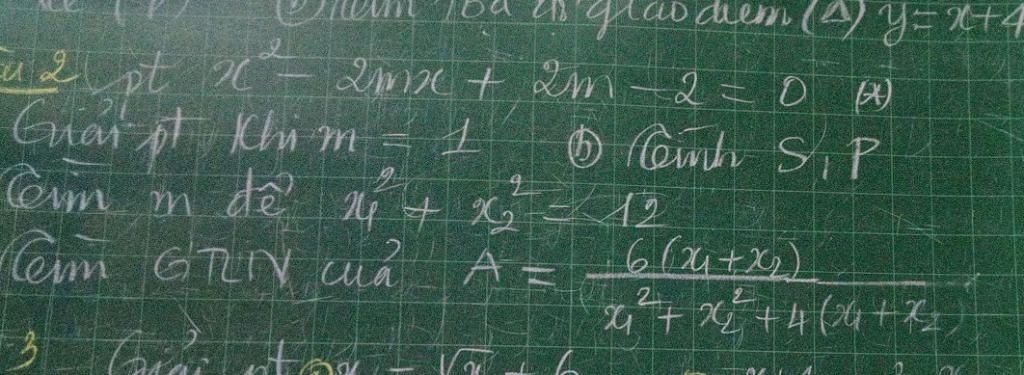 giao điểm (Δ) y = x + 4
2 pt x² - 2mx + 2m - 2 = 0 (*)
Giải pt khi m = 1 ⓑ Tính S, P
Tìm m để x₁² + x₂² = 12
Tìm GTLN của A = 6(x₁ + x₂) / x₁² + x₂² + 4(x₁ + x₂
3 Giải pt